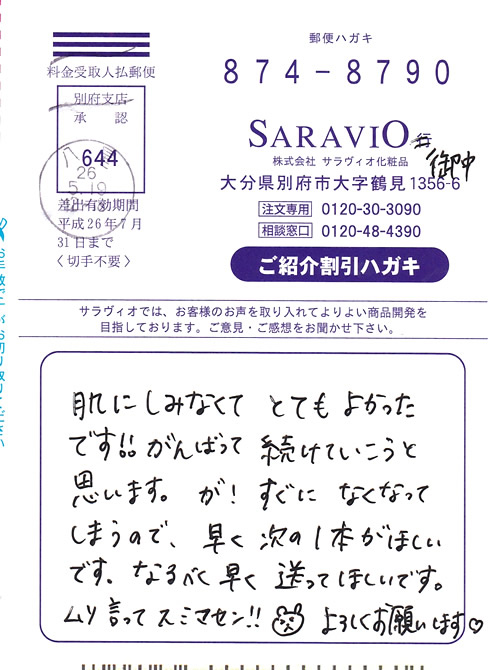 郵便ハガキ
料金受取人払郵便
874-8790
別府支店
承認
644
26
差出有効期間
平成26年7月
31日まで
〈切手不要〉
SARAVIO 御中
株式会社 サラヴィオ化粧品
大分県別府市大字鶴見1356-6
注文専用 0120-30-3090
相談窓口 0120-48-4390
ご紹介割引ハガキ
サラヴィオでは、お客様のお声を取り入れてよりよい商品開発を
目指しております。ご意見・ご感想をお聞かせ下さい。
肌にしみなくて とても よかった
です!! がんばって 続けていこうと
思います。が! すぐに なくなって
しまうので、早く 次の1本がほしい
です。なるべく早く 送ってほしいです。
ムリ言って スミマセン!! よろしくお願いします♡